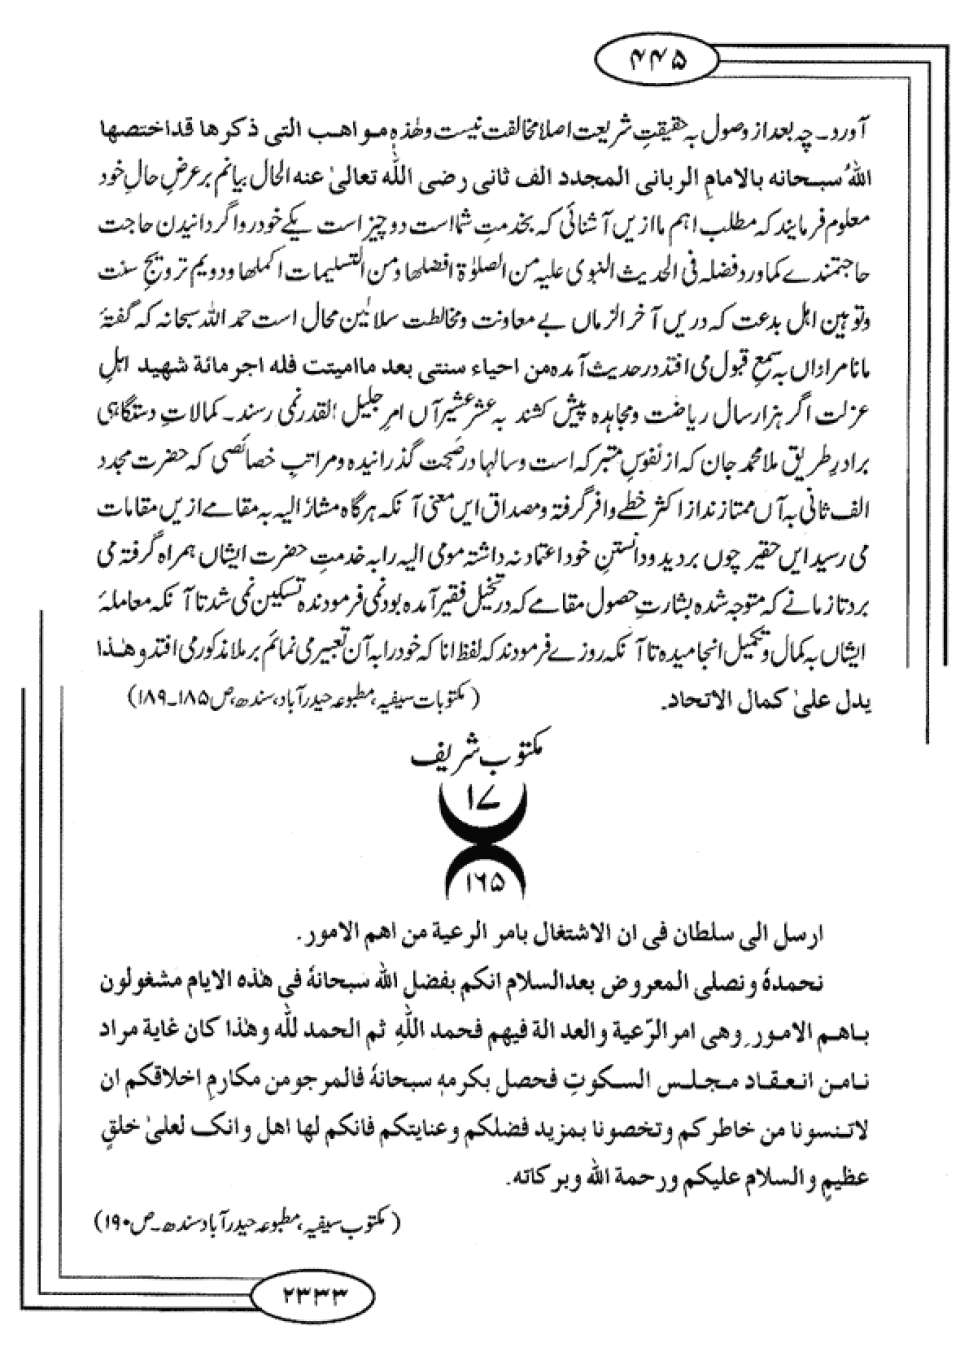 ۴۴۵
آورد۔ چہ بعد از وصول بہ حقیقتِ شریعت اصلا مخالفت نیست وھٰذہٖ مواھب التی ذکرھا قداختصھا
اللہُ سبحانہ بالامامِ الربانی المجدد الف ثانی رضی اللّٰہ تعالیٰ عنہ الحال بیانم بر عرضِ حالِ خود
معلوم فرمایند کہ مطلب اہم ما ازیں آشنائی کہ بخدمتِ شما است دو چیز است یکے خود را واگردانیدن حاجت
حاجتمندے کما ورد فضلہ فی الحدیث النبوی علیہ من الصلوٰۃ افضلھا ومن التسلیمات اکملھا ودویم ترویجِ سنت
وتوہین اہل بدعت کہ دریں آخر الزماں بے معاونت ومخالطت سلاطین محال است حمد اللہ سبحانہ کہ گفتۂ
ما نامراداں بہ سمعِ قبول می افتد در حدیث آمدہ من احیاء سنتی بعد ما امیتت فلہ اجر مائۃ شھید اہلِ
عزلت اگر ہزار سال ریاضت ومجاہدہ پیش کشند بہ عشر عشیر آں امرِ جلیل القدر نمی رسند۔ کمالات دستگاہی
برادرِ طریق ملا محمد جان کہ از نفوسِ متبرکہ است وسالہا در صحبت گذرانیدہ ومراتبِ خصائصی کہ حضرت مجدد
الف ثانی بہ آں ممتازند از اکثر خطے وافر گرفتہ ومصداق ایں معنی آنکہ ہرگاہ مشارٌ الیہ بہ مقامے ازیں مقامات
می رسید ایں حقیر چوں بردید ودانستنِ خود اعتماد نہ داشتہ مومی الیہ را بہ خدمتِ حضرت ایشاں ہمراہ گرفتہ می
برد تا زمانے کہ متوجہ شدہ بشارتِ حصول مقامے کہ در تخیل فقیر آمدہ بود نمی فرمودند تسکین نمی شد تا آنکہ معاملۂ
ایشاں بہ کمال و تکمیل انجامیدہ تا آنکہ روزے فرمودند کہ لفظ انا کہ خود را بہ آن تعبیر می نمائم بر ملا مذکور می افتد وھٰذا
یدل علیٰ کمال الاتحاد۔ (مکتوبات سیفیہ، مطبوعہ حیدرآباد، سندھ، ص۱۸۵۔۱۸۹)
مکتوب شریف
۱۷
۱۶۵
ارسل الی سلطان فی ان الاشتغال بامر الرعیة من اھم الامور.
نحمدہٗ ونصلی المعروض بعدالسلام انکم بفضل اللہ سبحانہٗ فی ھٰذہ الایام مشغولون
باھم الامور. وھی امر الرّعیة والعدالة فیھم فحمد اللّٰہِ ثم الحمد للّٰہ وھٰذا کان غایة مراد
نامن انعقاد مجلس السکوتِ فحصل بکرمہٖ سبحانہٗ فالمرجو من مکارمِ اخلاقکم ان
لاتنسونا من خاطرکم وتخصونا بمزید فضلکم وعنایتکم فانکم لھا اھل وانک لعلیٰ خلقٍ
عظیمٍ والسلام علیکم ورحمة اللہ وبرکاتہ.
(مکتوب سیفیہ، مطبوعہ حیدرآباد سندھ۔ ص۱۹۰)
۲۳۳۳